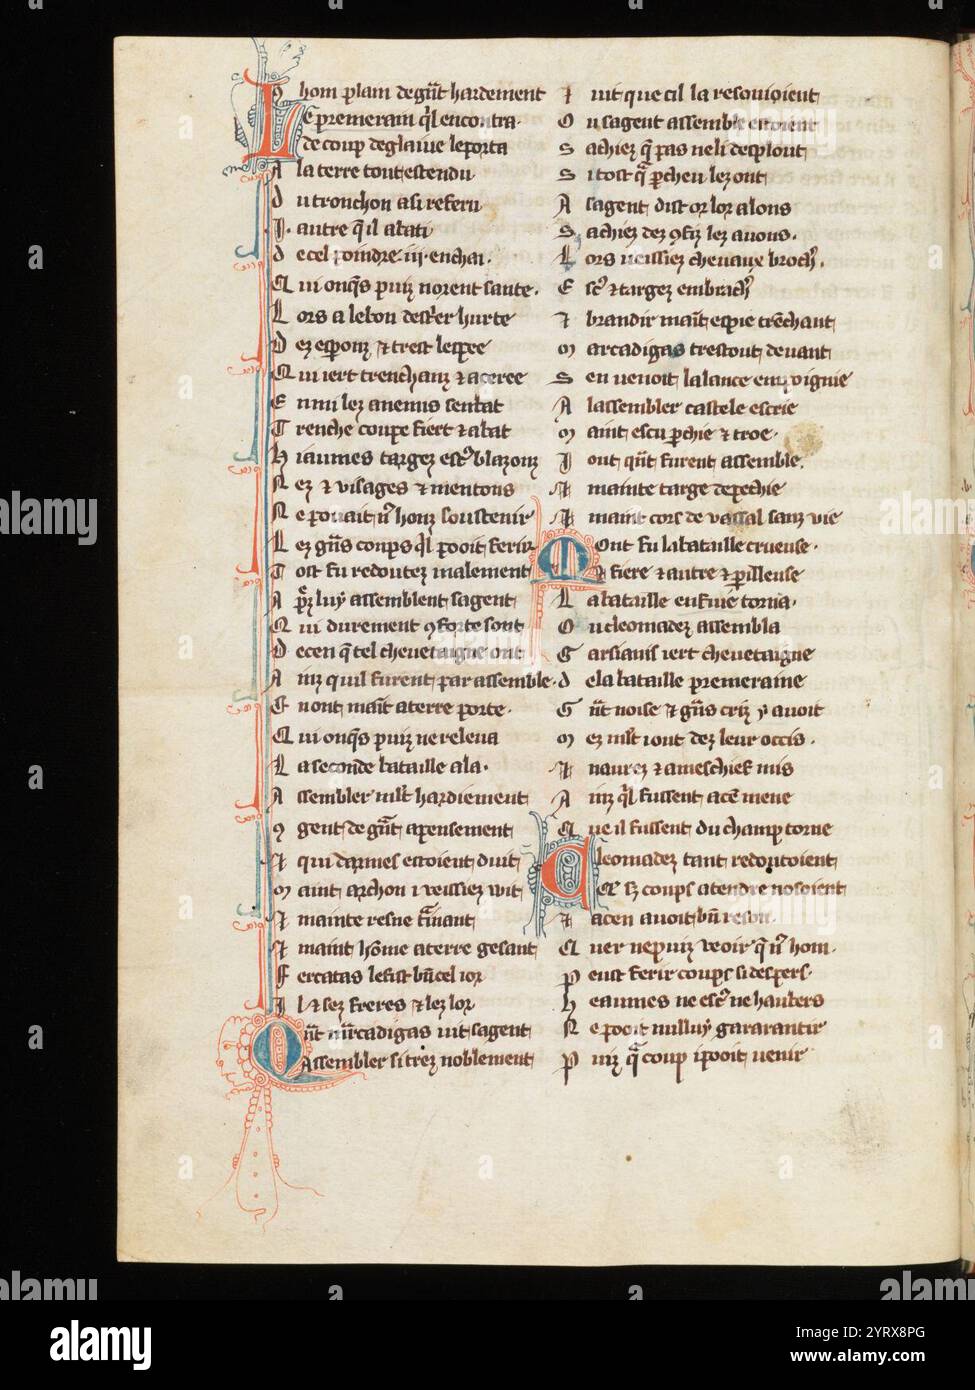 hom plain de gnt hardement
Le premerain ql encontra
de coup de glaiue le porta
A la terre tout estendu
D u tronchon a si referu
I . autre q il abati
D e cel poindre .iii. en chai.
Q ui onqs puiz norent sante.
L ors a le bon destrer hurte
D ez esponz et trest lespee
Q ui iert trenchanz et aceree
E nmi lez anemis senbat
T renche coupe fiert et abat
H iaumes targez esc blazonz
N ez et visages et mentons
N e pouait nz honz soustenir
L ez gns coups ql pooit ferir
T ost fu redoutez malement
A pz luy assemblent sagent
Q ui durement 9forte sont
D e cen q tel cheuetaigne ont
A inz quil furent par assemble
E nont maint a terre porte.
Q ui onqs puiz ne releua
L a seconde bataille ala.
A ssembler mlt hardiement
9 gent de gnt apensement
Et qui darmes estoient duit
M aint archon i veissiez wit
Et mainte resne trainant
Et maint home a terre gesant
F ercatas le fist bn cel ior
I l et sez freres et lez lor
Qnt marcadigas uit sa gent
Assembler si trez noblement
I uit que cil la resouioient
O u sagent assemble estoient
S achiez q pas ne li desplout
S i tost q pcheu lez ont
A sagent dist or lor alons
S achiez dez 9fiz lez auons.
L ors veissiez cheuaux broch.
E sc et targez enbrach
Et brandir maint espie trenchant
M arcadigas trestout deuant
S en uenoit la lance enpoignie
A lassembler castele escrie
M aint escu pchie et troe.
I ont qnt furent assemble.
Et mainte targe depechie
Et maint cors de vassal sanz vie
Mont fu la bataille crueuse.
Et fiere et autre et pilleuse
L a bataille enfuie torna.
O u cleomadez assembla
G arsianis iert cheuetaigne
D e la bataille premeraine
G nt noise et gns criz y auoit
M ez mlt iont dez leur occis.
Et naurez et a meschief mis
A inz ql fussent a cen mene
Q ue il fussent du champ torne
Cleomadez tant redoutoient
Qe sez coups atendre nosoient
Et a cen auoit bn reson
Q uer ne puiz veoir q nz hom.
P eust ferir coups si despers.
H eaumes ne esc ne haubers
N e pooit nulluy gararantir
P uiz q a coup i pooit uenir
alamy
Image ID: 2YRX8PG
www.alamy.com